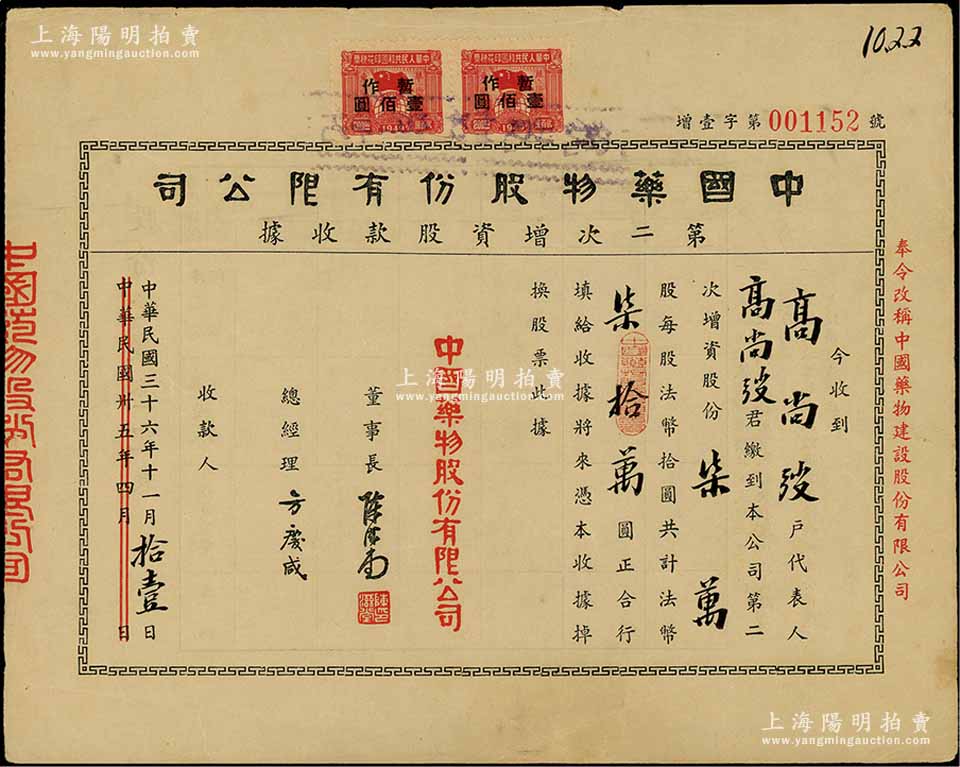 上海陽明拍賣
www.yangmingauction.com
1022
中華人民共和國印花稅票
暫作
壹佰圓
1949
中華人民共和國印花稅票
暫作
壹佰圓
1949
增壹字第001152號
中國藥物股份有限公司
第二次增資股款收據
奉令改稱中國藥物建設股份有限公司
今收到
高尚 戶代表人
高尚 君繳到本公司第二
次增資股份柒萬
股每股法幣拾圓共計法幣
柒拾萬圓正合行
填給收據將來憑本收據掉
換股票此據
中國藥物股份有限公司
董事長
總經理 方慶咸
收款人
中華民國三十六年十一月拾壹日
中華民國卅五年四月 日
上海陽明拍賣
www.yangmingauction.com
上海陽明拍賣
www.yangmingauction.com